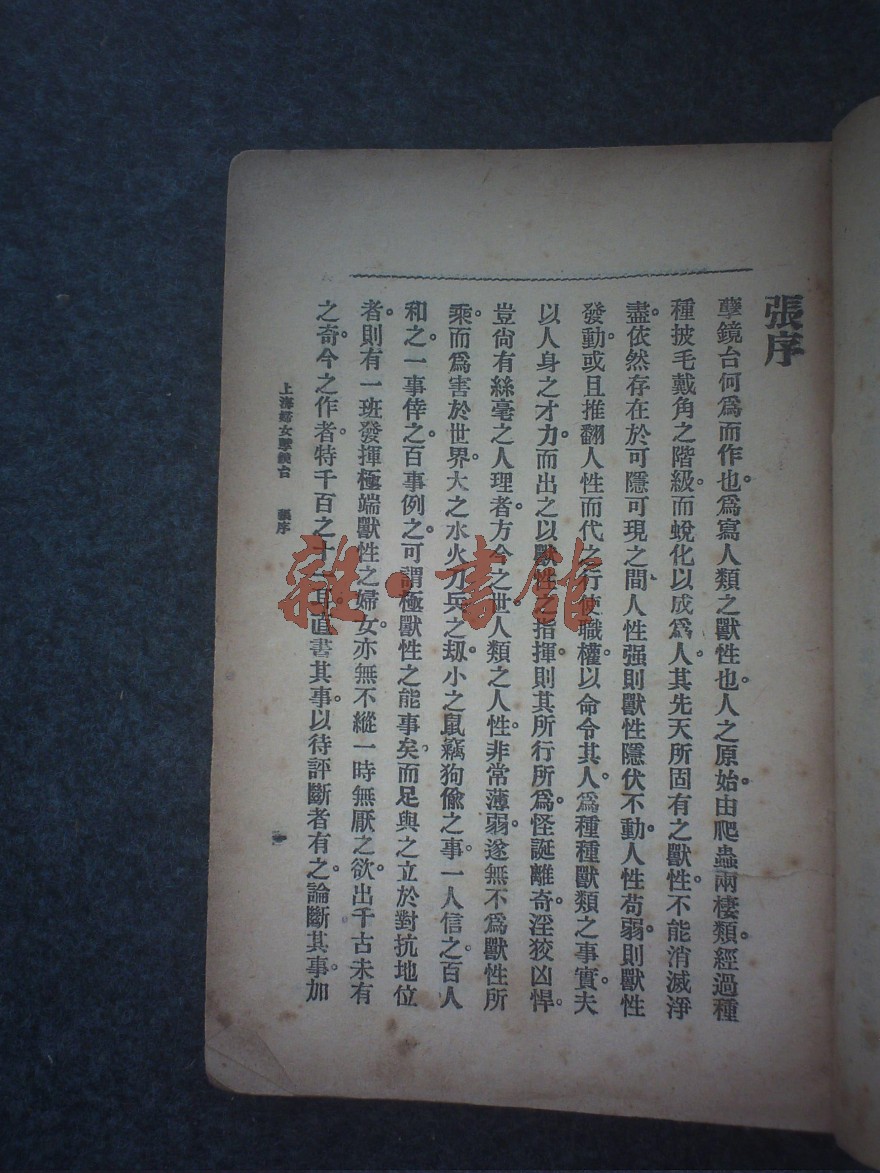 張序
孽鏡台何爲而作也。爲寫人類之獸性也。人之原始。由爬蟲兩棲類。經過種
種披毛戴角之階級。而蛻化以成爲人。其先天所固有之獸性。不能消滅淨
盡。依然存在於可隱可現之間。人性强則獸性隱伏不動。人性苟弱。則獸性
發動。或且推翻人性而代之行使職權。以命令其人。爲種種獸類之事實。夫
以人身之才力。而出之以獸性之指揮。則其所行所爲。怪誕離奇。淫狡凶悍。
豈尙有絲毫之人理者。方今之世。人類之人性。非常薄弱。遂無不爲獸性所
乘。而爲害於世界。大之水火刀兵之刼。小之鼠竊狗偷之事。一人信之。百人
和之。一事倖之。百事例之。可謂極獸性之能事矣。而足與之立於對抗地位
者。則有一班發揮極端獸性之婦女。亦無不縱一時無厭之欲。出千古未有
之奇。今之作者。特千百之十一耳。直書其事。以待評斷者有之。論斷其事。加
上海婦女孽鏡台 張序
雜·書館